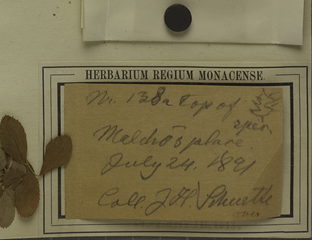 HERBARIUM REGIUM MONACENSE.
Nr. 138a Top of
Malchö's place
July 24. 1891
Coll. J H Schuette